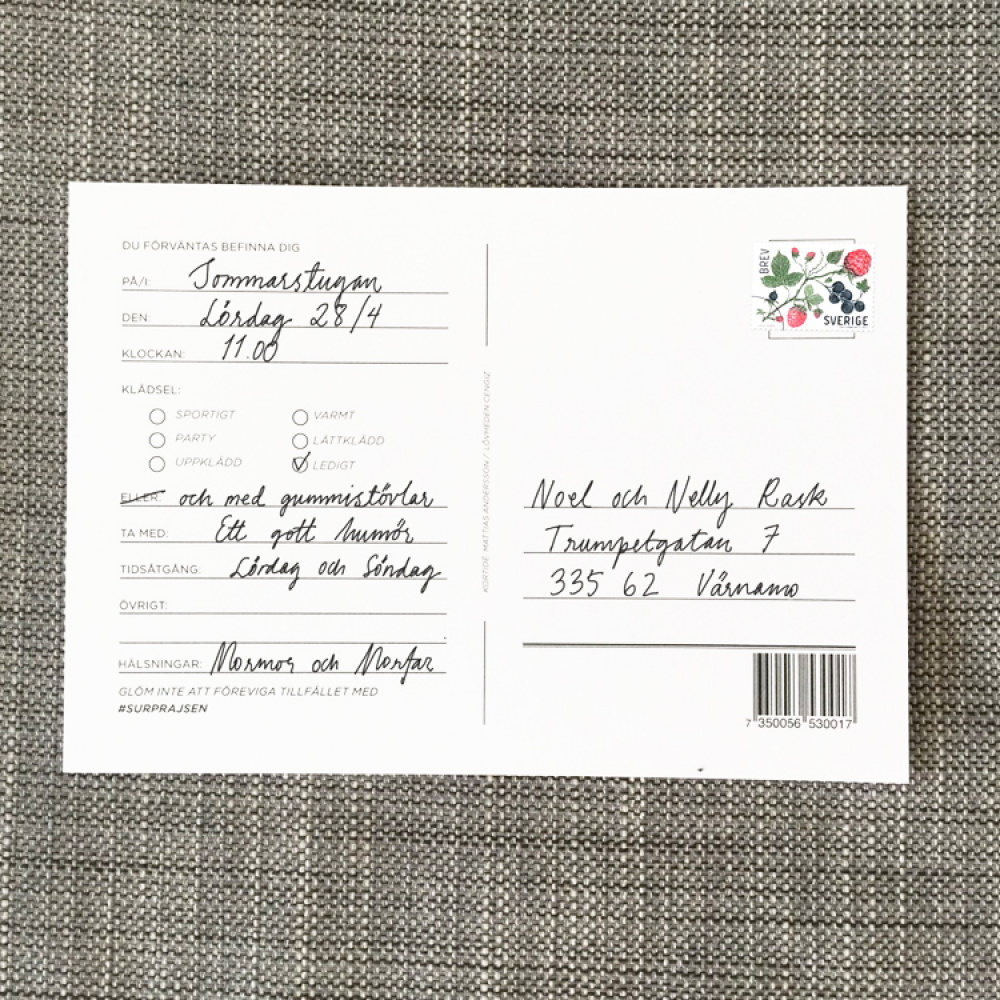 DU FÖRVÄNTAS BEFINNA DIG
PÅ/I: Sommarstugan
DEN: Lördag 28/4
KLOCKAN: 11.00
KLÄDSEL:
SPORTIGT VARMT
PARTY LÄTTKLÄDD
UPPKLÄDD LEDIGT
ELLER: och med gummistövlar
TA MED: Ett gott humör
TIDSÅTGÅNG: Lördag och Söndag
ÖVRIGT:
HÄLSNINGAR: Mormor och Morfar
GLÖM INTE ATT FÖREVIGA TILLFÄLLET MED
#SURPRAJSEN
KORTIDÉ: MATTIAS ANDERSSON / LÖVHEDEN CENGIZ
BREV
SVERIGE
Noel och Nelly Rask
Trumpetgatan 7
335 62 Värnamo
7 350056 530017